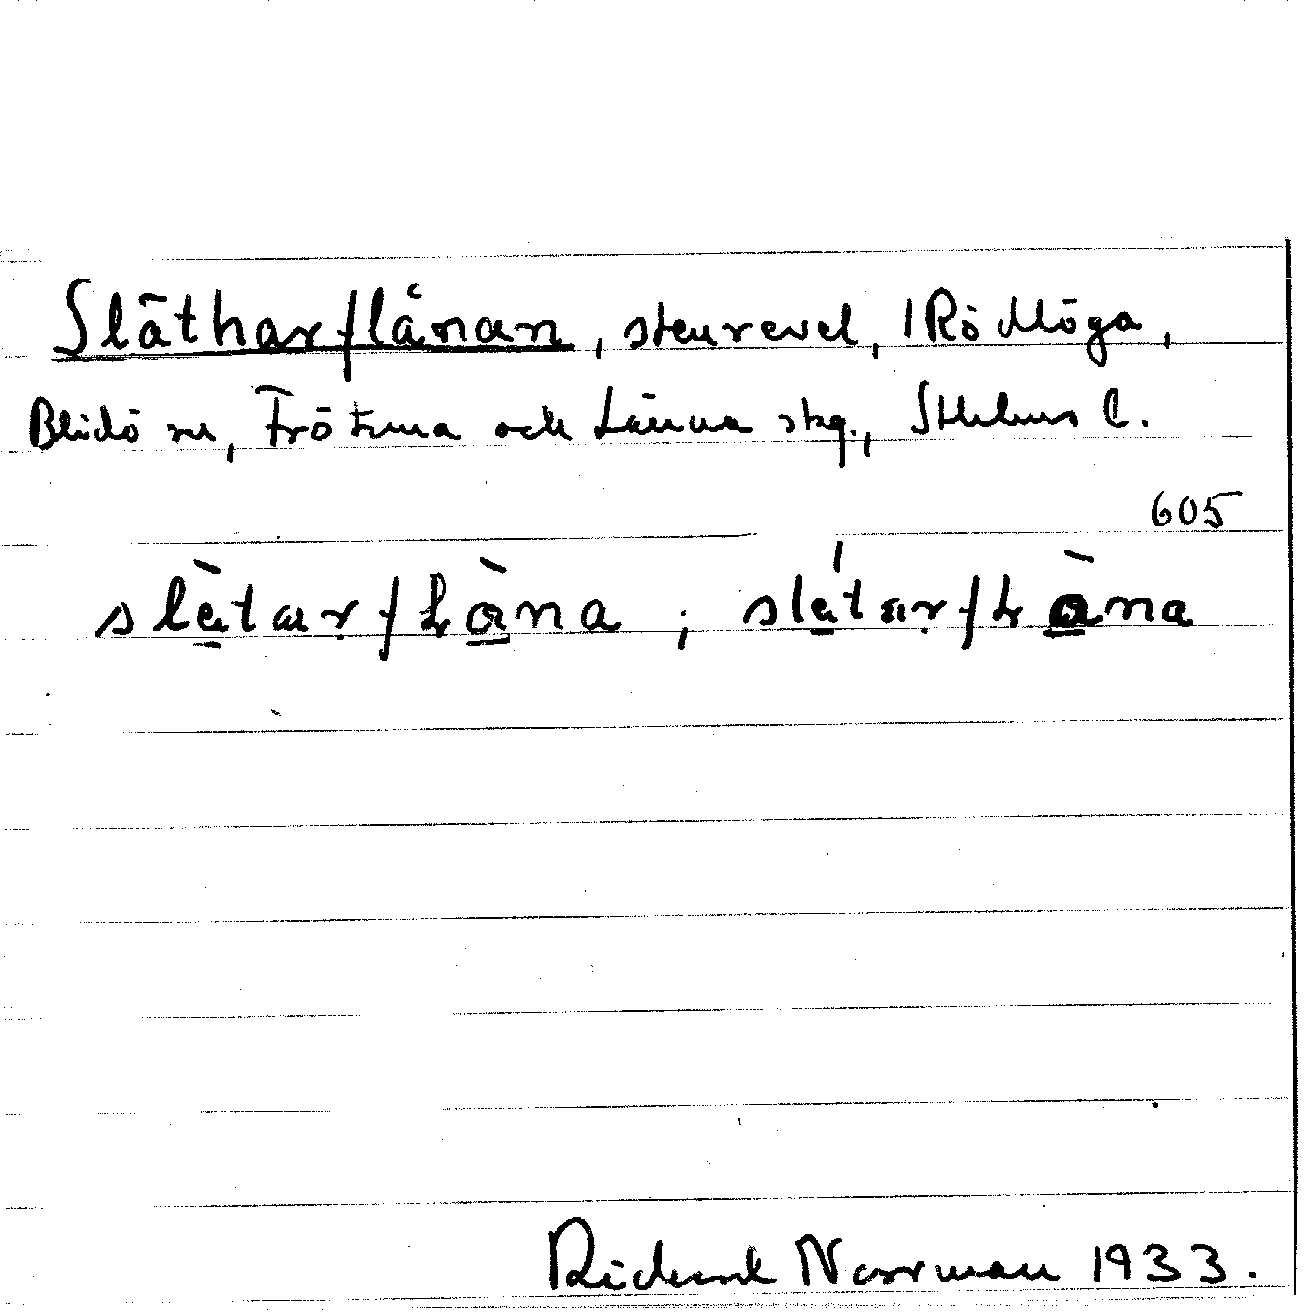 Slätharflånan, stenrevel, 1 Rö dlöga,
Blidö sn, Frötuna och Länna skg., Sthlms l.
605
slàtarfƚàna ; slátarfƚàna
Rickard Norrman 1933.